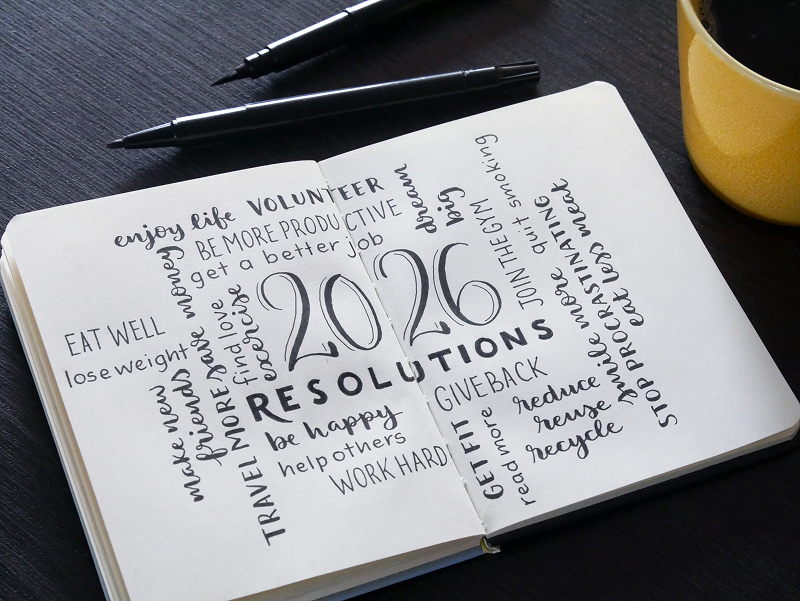 enjoy life
VOLUNTEER
BE MORE PRODUCTIVE
get a better job
dream
big
quit smoking
JOIN THE GYM
EAT WELL
lose weight
save money
find love
exercise
2026
RESOLUTIONS
smile more
STOP PROCRASTINATING
eat less meat
make new
friends
TRAVEL MORE
be happy
help others
WORK HARD
GIVE BACK
GET FIT
read more
reduce
reuse
recycle